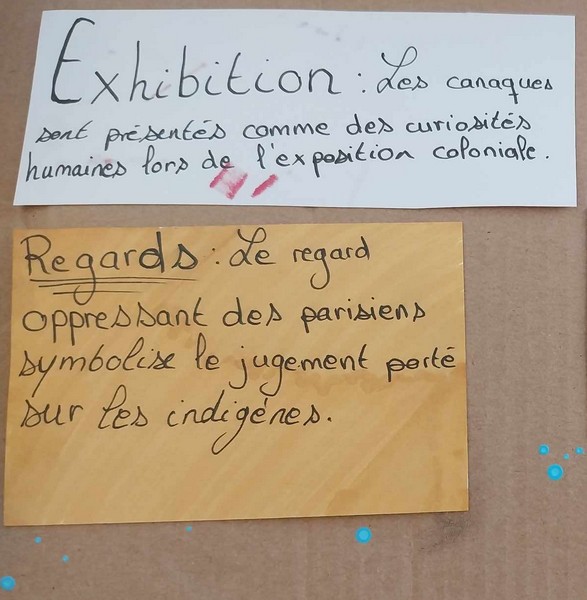 Exhibition : Les canaques
sont présentés comme des curiosités
humaines lors de l'exposition coloniale.
Regards : Le regard
oppressant des parisiens
symbolise le jugement porté
sur les indigénes.